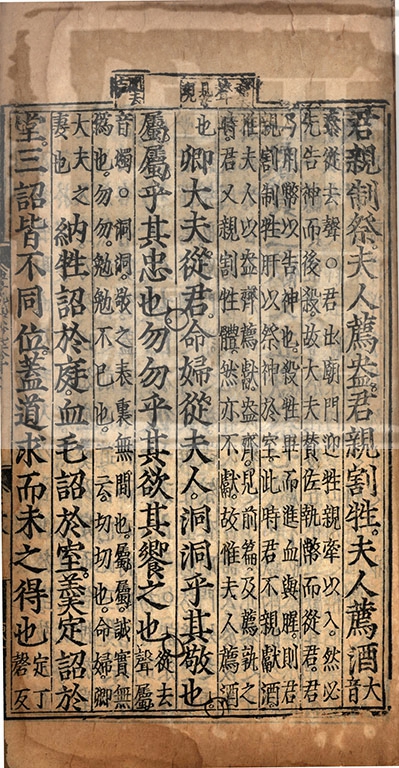 君親制祭夫人薦盎君親割牲夫人薦酒大音
泰從去聲○君出廟門迎牲親牽以入然必
先告神而後殺故大夫贊佐執幣而從君君
乃用幣以告神也殺牲畢而進血與腥則君
親割制牲肝以祭神於室此時君不親獻酒
惟夫人以盎齊薦獻盎齊見前篇及薦孰之
時君又親割牲體然亦不獻故惟夫人薦酒
也 卿大夫從君命婦從夫人洞洞乎其敬也
屬屬乎其忠也勿勿乎其欲其饗之也從去聲屬
音燭○洞洞敬之表裏無間也屬屬誠實無
偽也勿勿勉勉不已也一云切切也命婦卿
大夫之妻也 納牲詔於庭血毛詔於室羹定詔於
堂三詔皆不同位蓋道求而未之得也定丁磬反